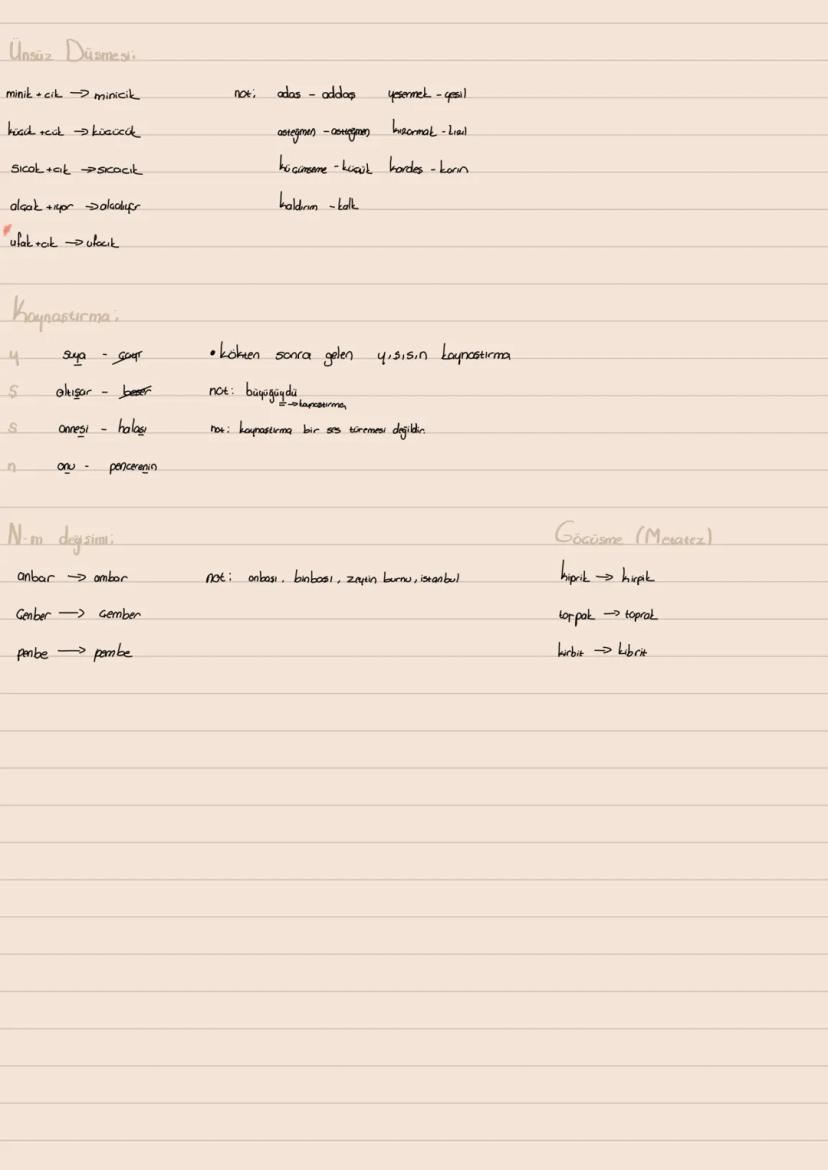 Ünsüz Düşmesi:
minik + cik → minicik
küçük + cük → küçücük
sıcak + cık → sıcacık
alçak + ıyor → alçalıyor
ufak + cık → ufacık
not: adaş - addaş yeşermek - yeşil
asteğmen - astteğmen kızarmak - kızıl
küçümseme - küçük kardeş - karın
kaldırım - kalk
Kaynaştırma:
y suya - çayı
ş altışar - beşer
s annesi - halası
n onu - pencerenin
• kökten sonra gelen y,ş,s,n kaynaştırma
not: büyüğüydü
→ kaynaştırma
not: kaynaştırma bir ses türemesi değildir.
N-m değişimi:
anbar → ambar
Çenber → Çember
penbe → pembe
not: onbaşı, binbaşı, zeytin burnu, istanbul
Göçüşme (Metatez)
kiprik → kirpik
torpak → toprak
kirbit → kibrit